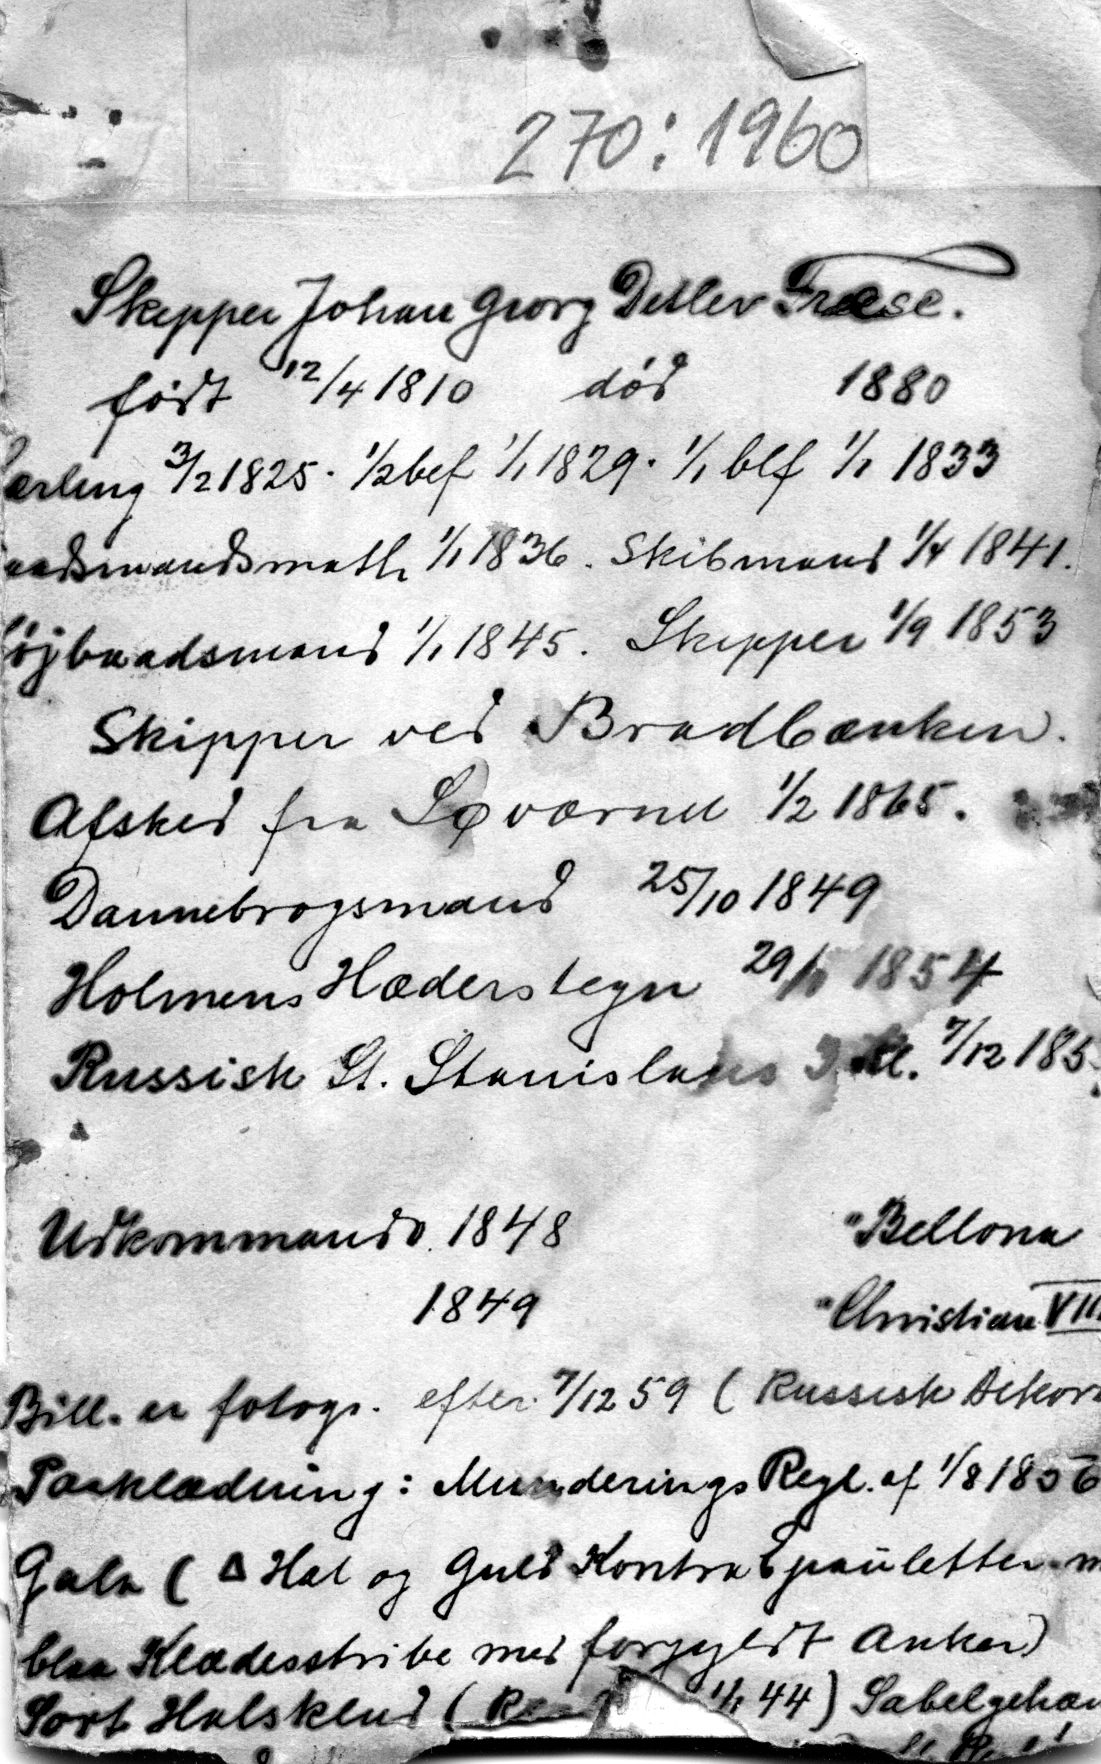 270:1960
Skipper Johan Georg Detlev Fræse.
født 12/4 1810 død 1880
ærling 3/2 1825. 1/2 bef 1/1 1829. 1/1 blf 1/1 1833
aadsmandsmath 1/1 1836. Skibmand 1/4 1841.
øjbaadsmand 1/1 1845. Skipper 1/9 1853
Skipper ved Bradbænken.
Afsked fra Søværnet 1/2 1865.
Dannebrogsmand 25/10 1849
Holmens Hæderstegn 29/ 1854
Russisk St. Stanislaus 3 Kl. 7/12 185
Udkommando. 1848 "Bellona
1849 "Christian VIII
Bill. er fotogr. efter 7/12 59 ( Russisk Dekora
Paaklædning: Munderings Regl. af 1/8 1856
Gala ( Δ Hat og Guld Kontra Epauletter m
blaa Klædesstribe med forgyldt Anker)
Sort Halsklud ( 1/1 44) Sabelgehæn